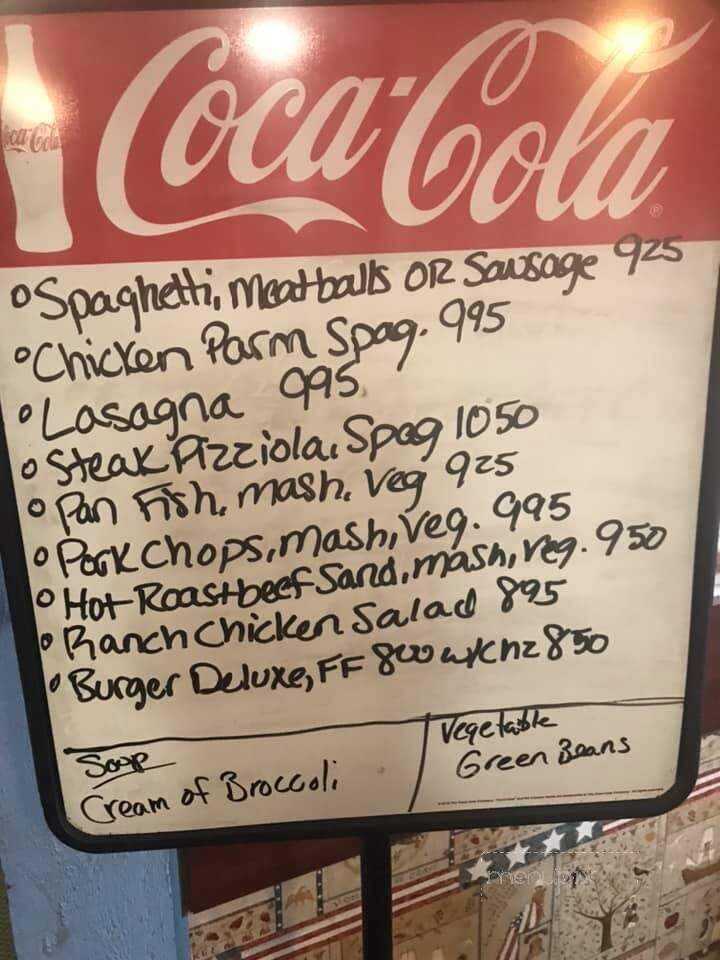 Coca-Cola
Coca-Cola
Spaghetti, Meatballs OR Sausage 925
Chicken Parm Spag. 995
Lasagna 995
Steak Pizziola. Spag 1050
Pan Fish, mash, Veg 925
Pork Chops, mash, Veg. 995
Hot Roastbeef Sand, mash, veg. 950
Ranch Chicken Salad 895
Burger Deluxe, FF 800 w/chz 850
Soup
Cream of Broccoli
Vegetable
Green Beans